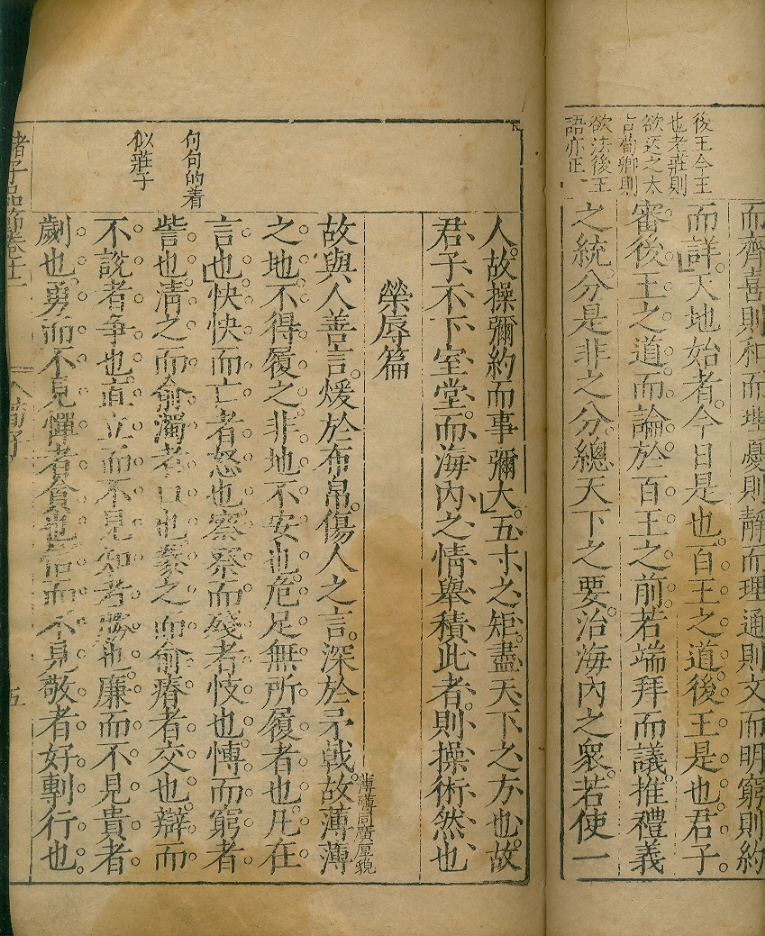 後王今王
也老莊則
欲返之太
古荀卿則
欲法後王
語亦正
而齊喜則和而理憂則靜而理通則文而明窮則約
而詳天地始者今日是也百王之道後王是也君子
審後王之道而論於百王之前若端拜而議推禮義
之統分是非之分總天下之要治海內之衆若使一
人故操彌約而事彌大五寸之矩盡天下之方也故
君子不下室堂而海內之情舉積此者則操術然也
榮辱篇
薄薄同廣厚貌
故與人善言煖於布帛傷人之言深於矛戟故薄薄
之地不得履之非地不安也危足無所履者也凡在
句句的着
似莊子
言也快快而亡者怒也察察而殘者忮也慱而窮者
訾也清之而俞濁者口也豢之而俞瘠者交也辯而
不說者爭也直立而不見知者勝也廉而不見貴者
劌也勇而不見憚者貪也信而不見敬者好剸行也
諸子品節卷十二
五